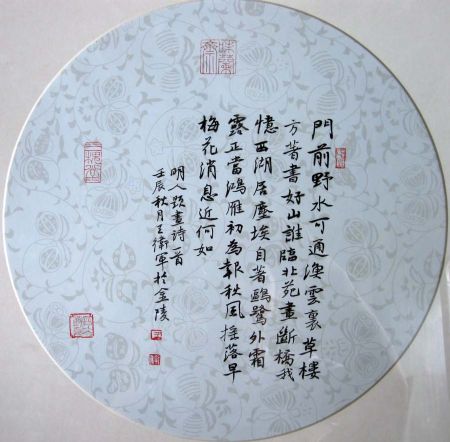 門前野水可通漁雲裏草樓
方著書好山誰臨北苑畫斷橋我
憶西湖居塵埃自著鷗鷺外霜
露正當鴻雁初為報秋風搖落早
梅花消息近何如
明人題畫詩一首
壬辰秋月王衛軍於金陵